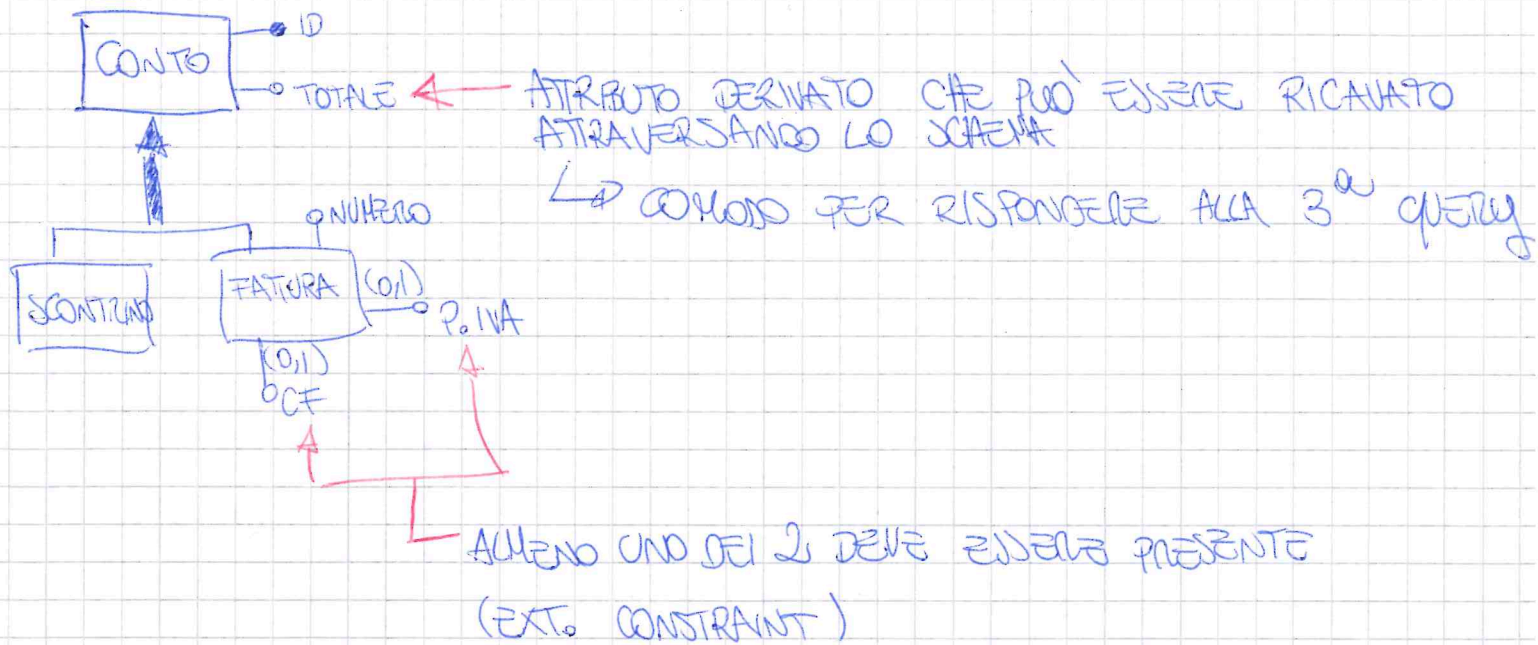 CONTO
ID
TOTALE
ATTRIBUTO DERIVATO CHE PUÒ ESSERE RICAVATO
ATTRAVERSANDO LO SCHEMA
COMODO PER RISPONDERE ALLA 3a QUERY
NUMERO
SCONTRINO
FATTURA
(0,1)
P.IVA
(0,1)
CF
ALMENO UNO DEI 2 DEVE ESSERE PRESENTE
(EXT. CONSTRAINT)